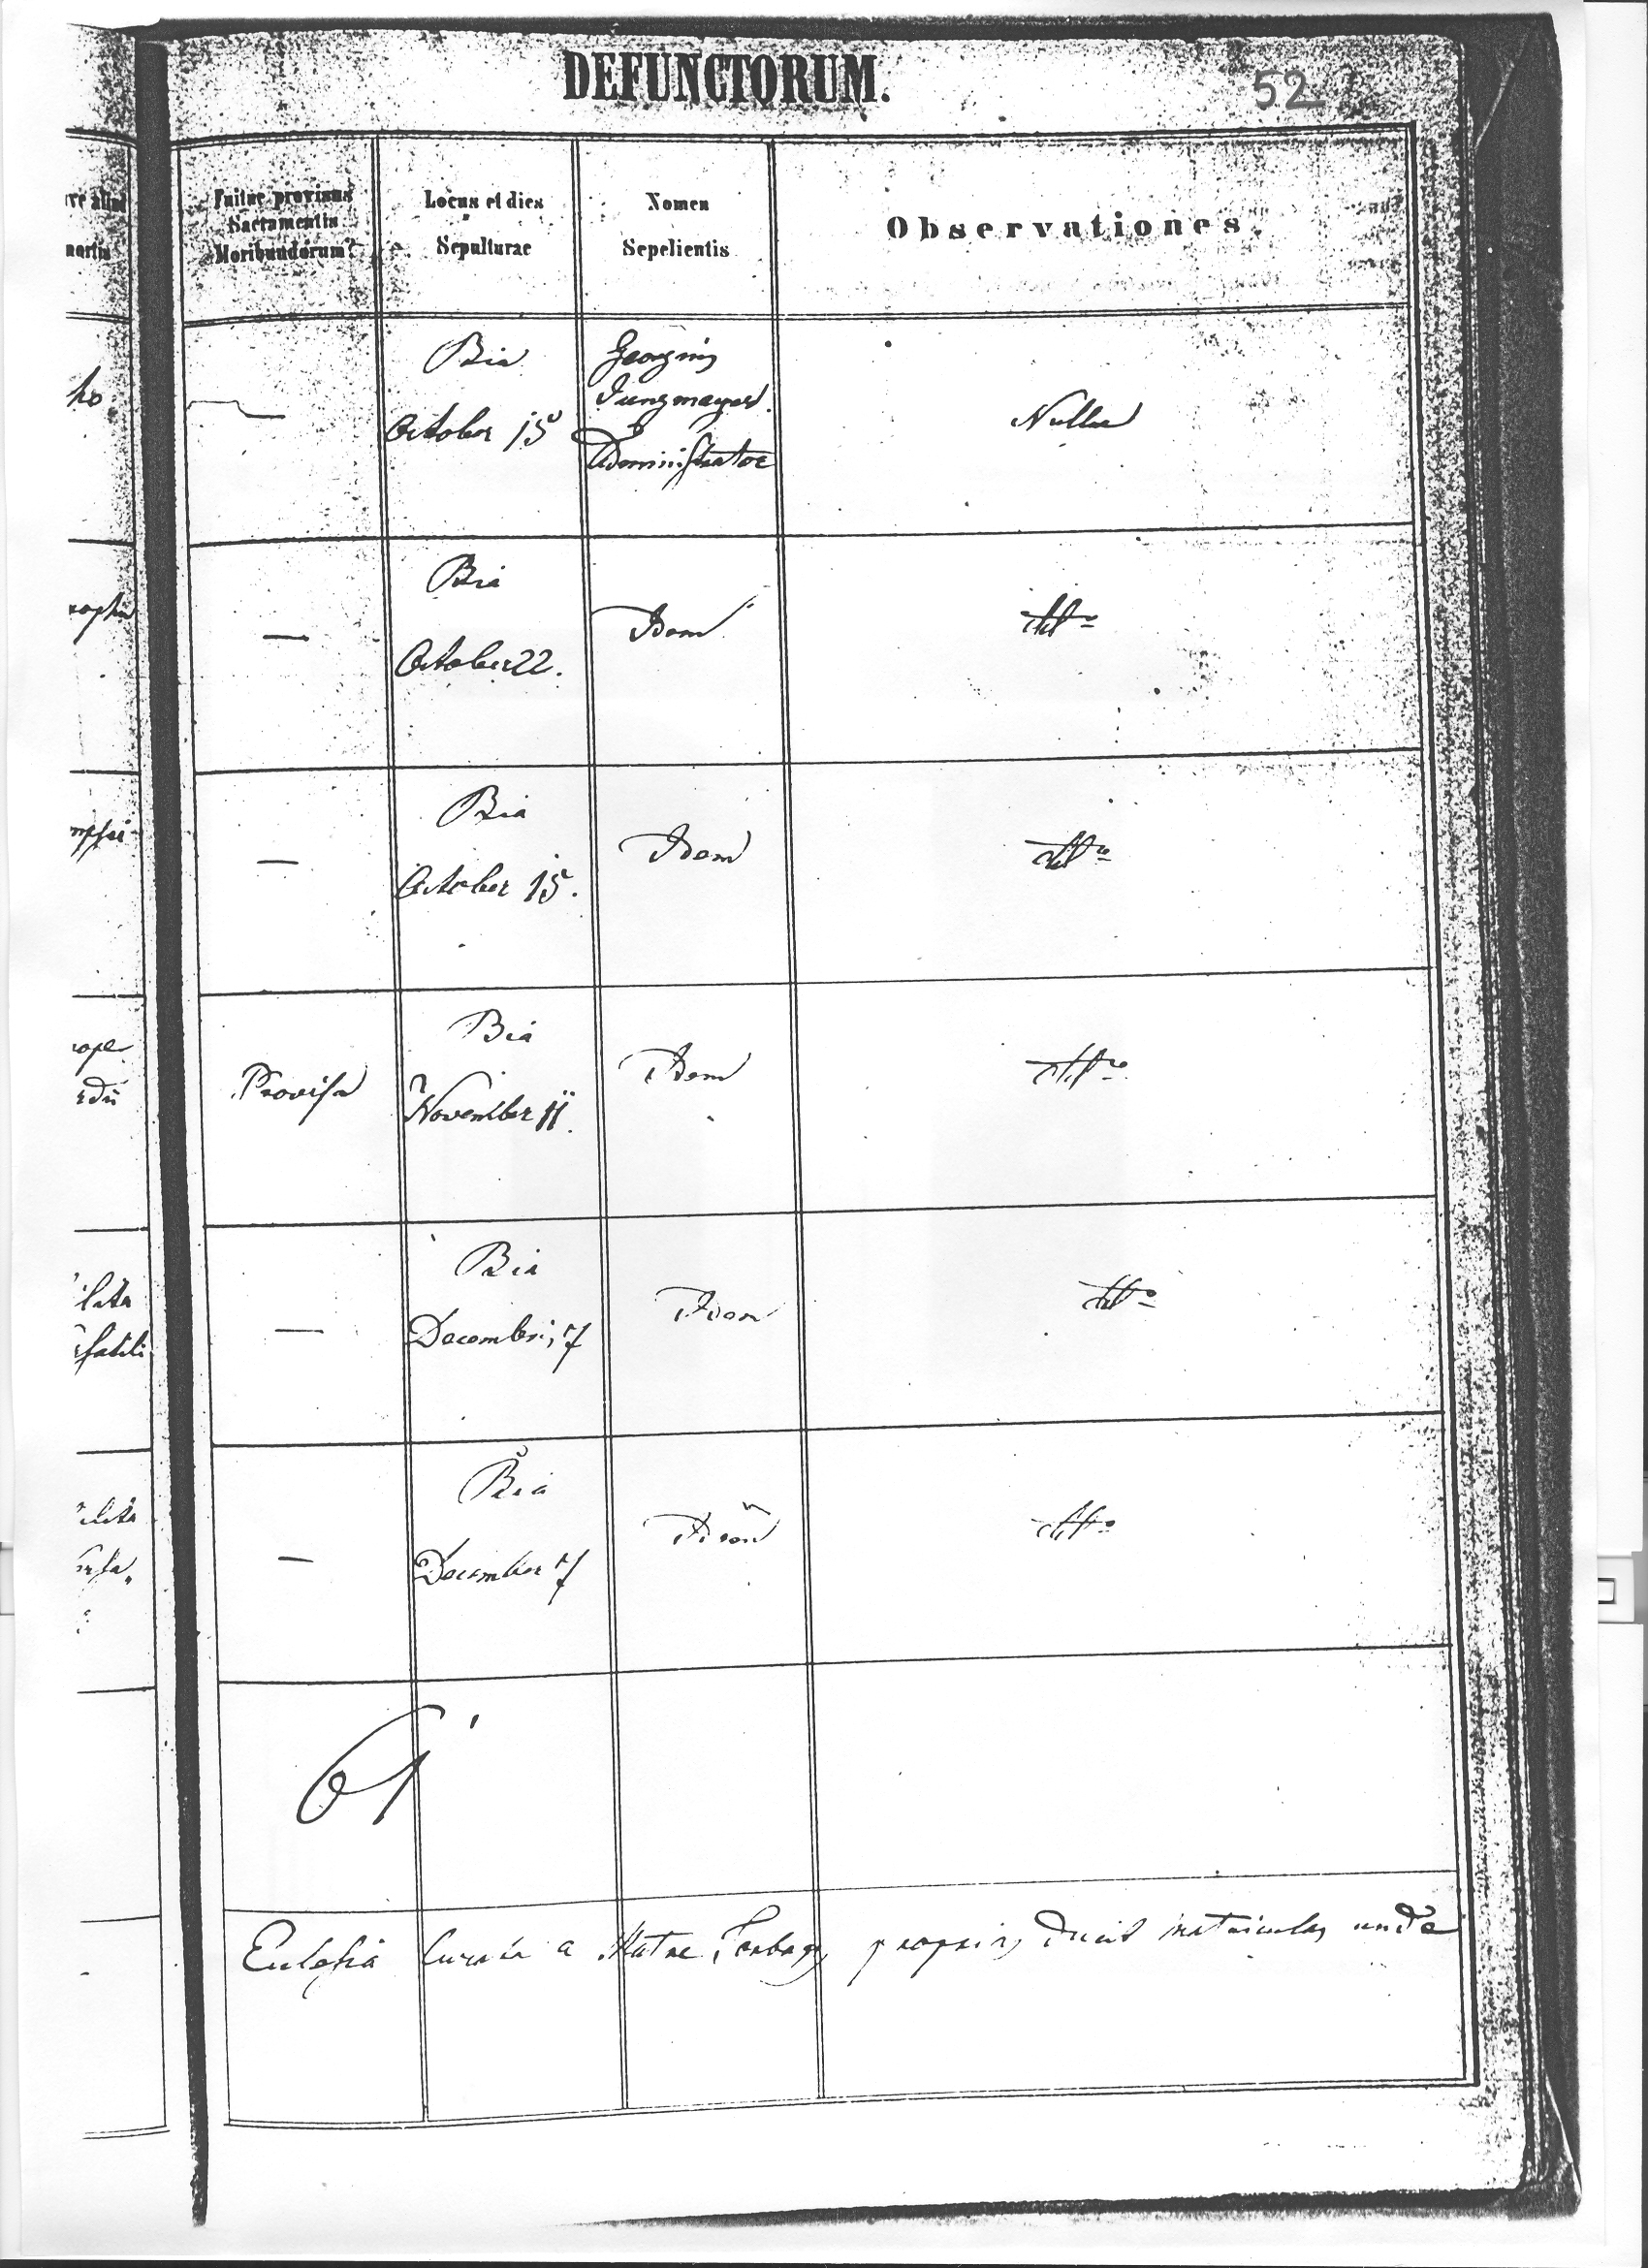 DEFUNCTORUM.
52
Fuitne provisus
Sacramentis
Moribundorum?
Locus et dies
Sepulturae
Nomen
Sepelientis
Observationes.
Bia
October 15
Georgius
Jungmayer
Administrator
Nulla
—
Bia
October 22.
Idem
ditto
—
Bia
October 15.
Idem
ditto
—
Provisa
Bia
November 11.
Idem
ditto
Bia
Decembris 7
Idem
ditto
—
Bia
December 7
Idem
ditto
—
Ecclesia a Matre Torbagy proprias ducit matriculas unde